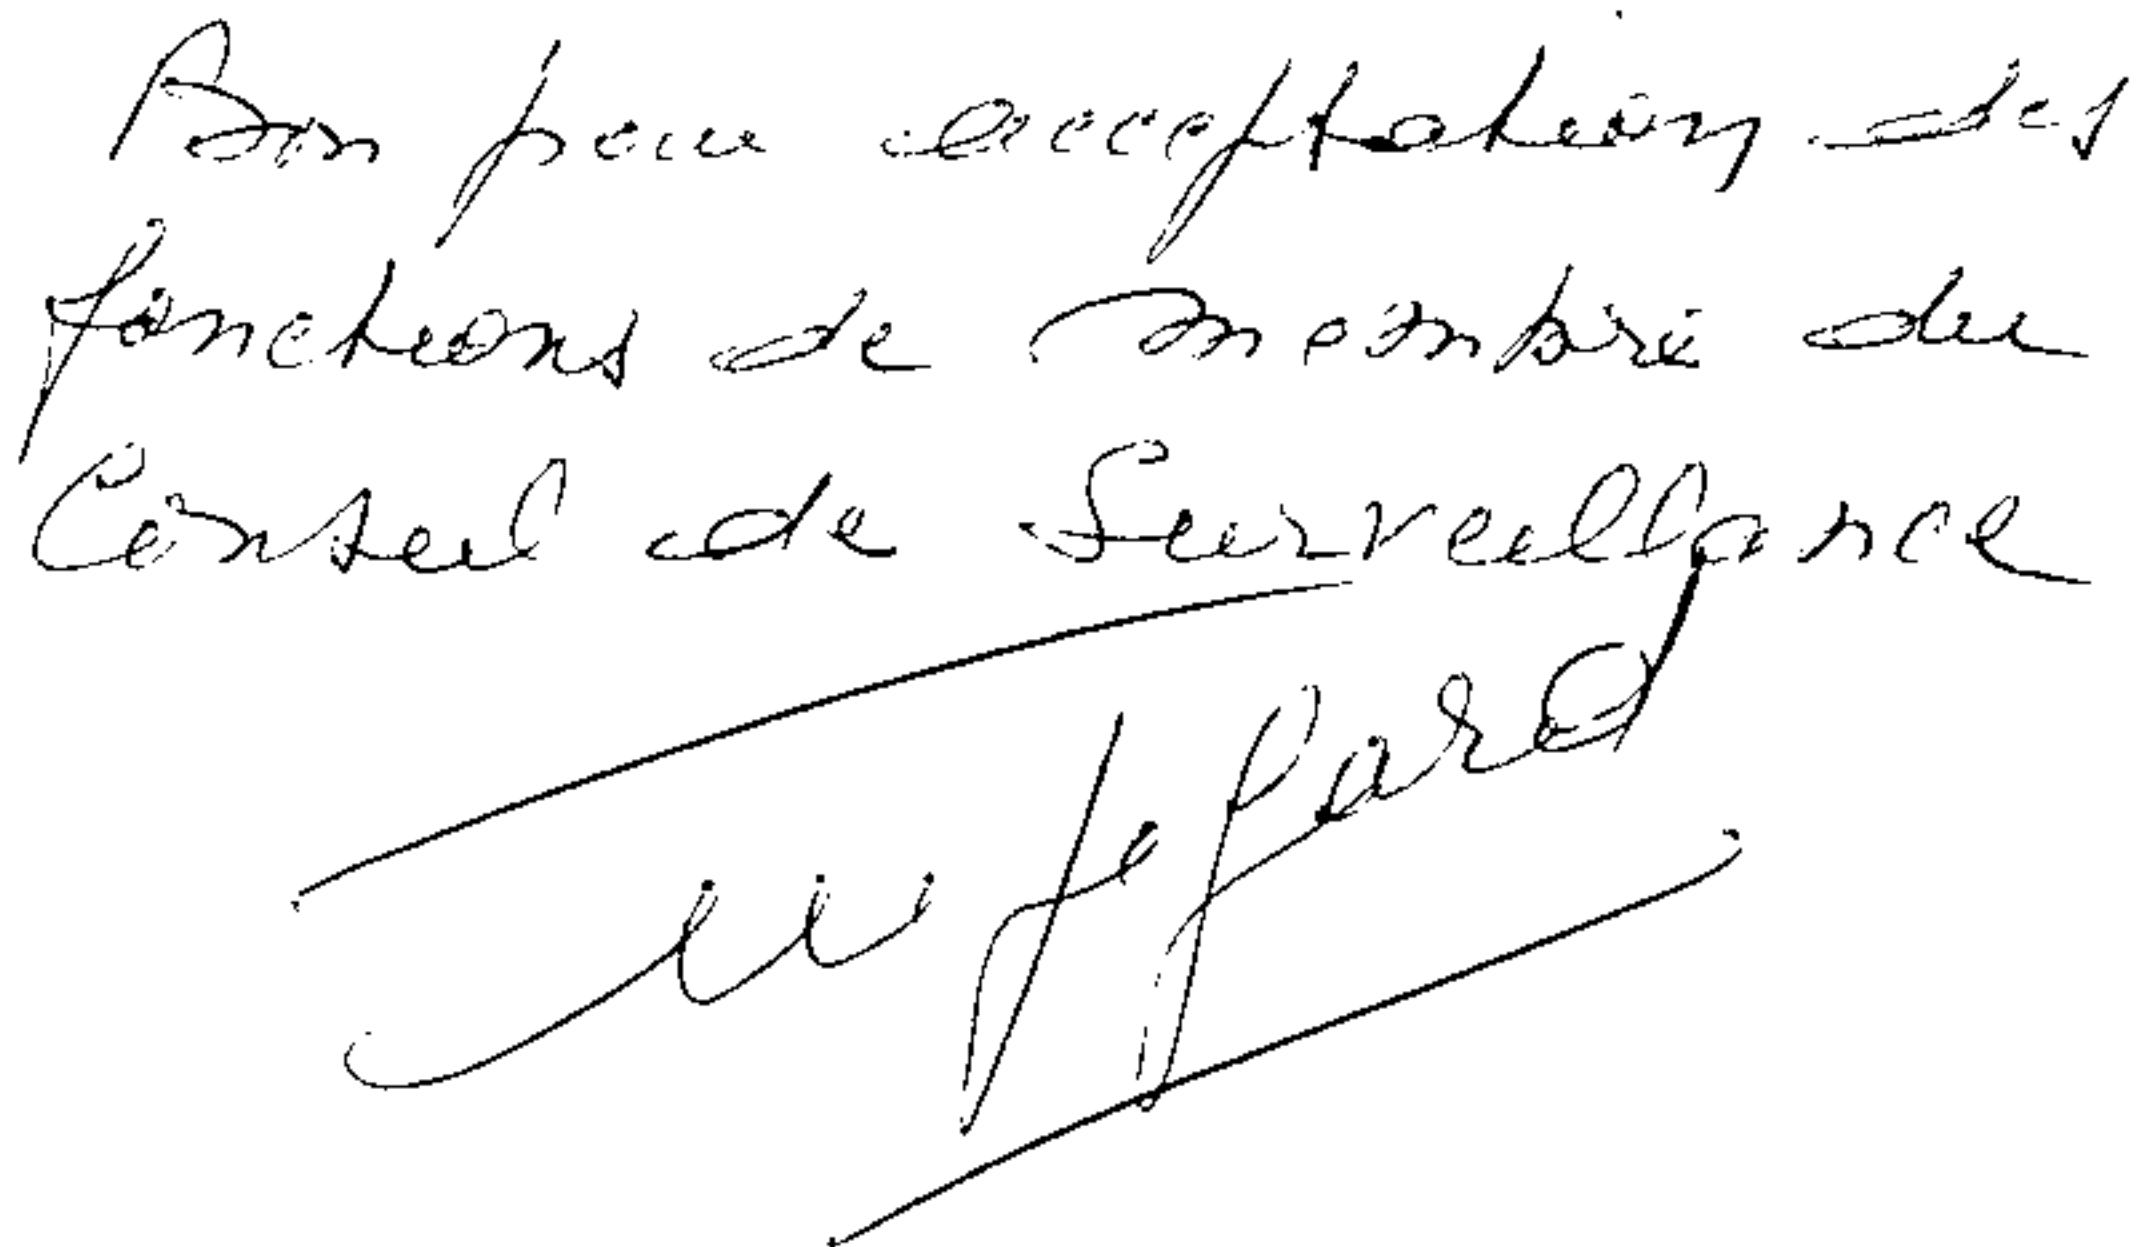 Bon pour acceptation des
fonctions de membre du
Conseil de Surveillance